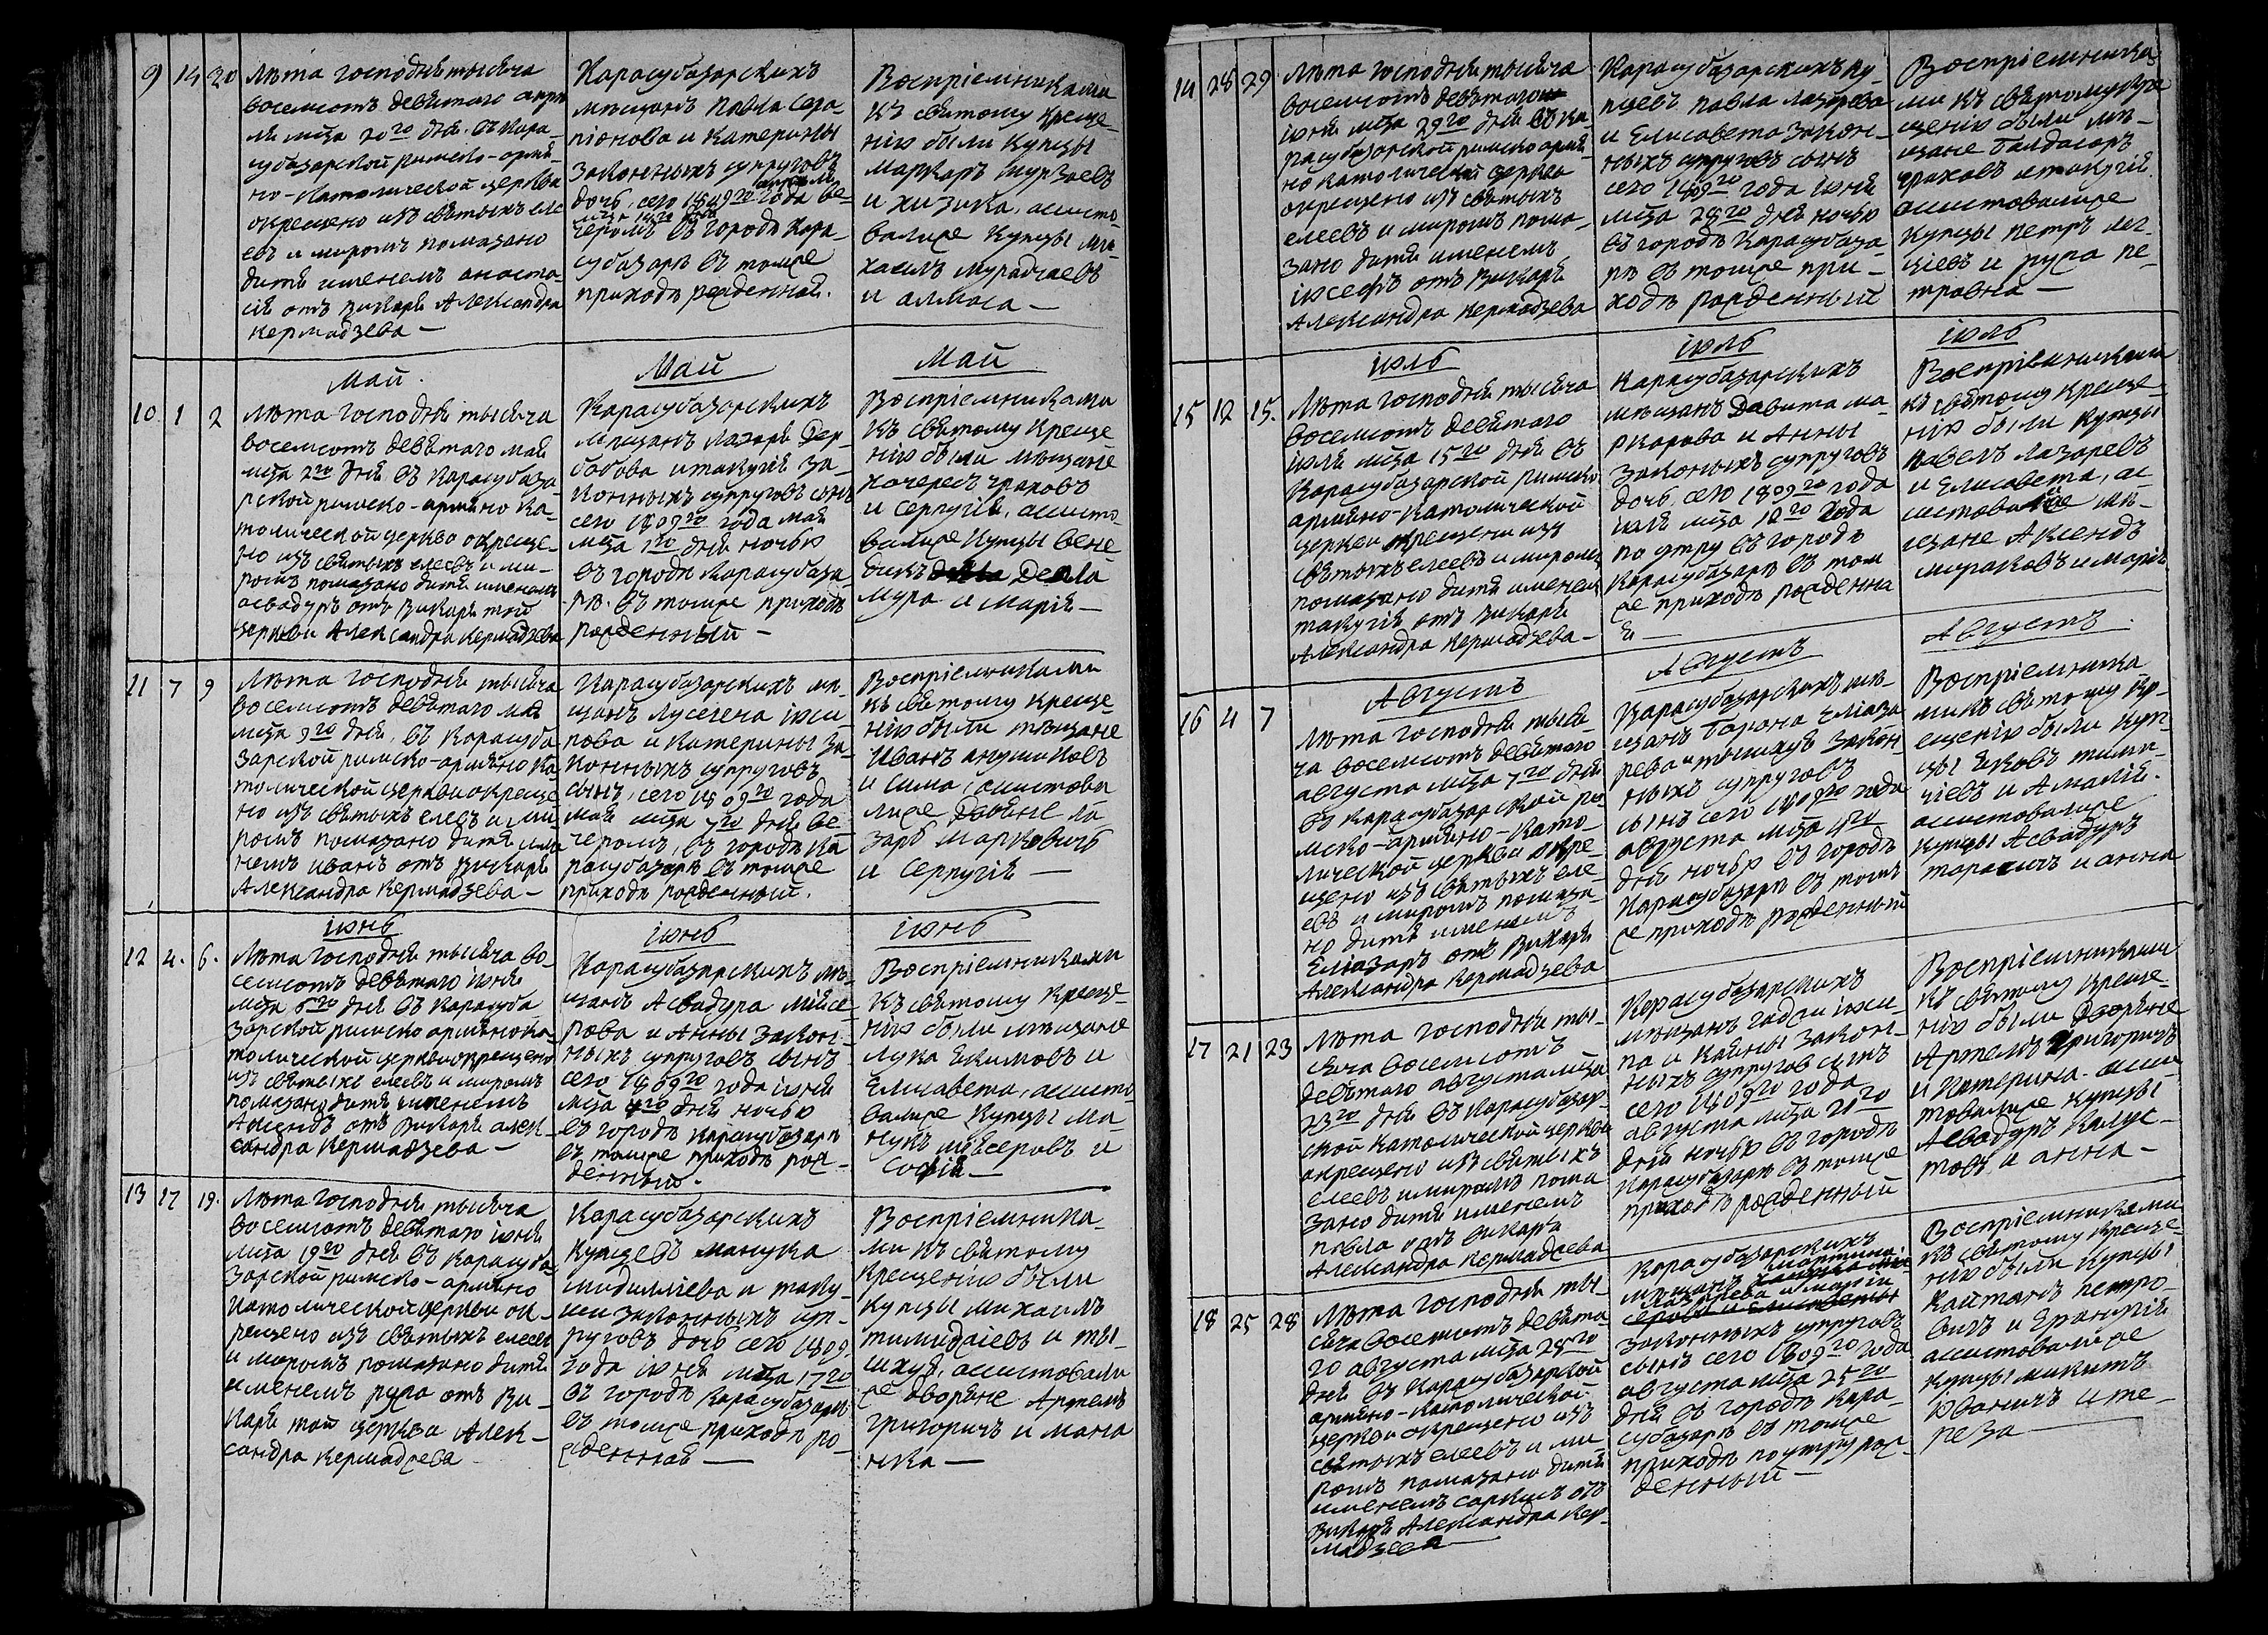 9 14 20
Лѣта Господнѣ тысѣча
восемсотъ девѣтаго апрѣ
лѣ мѣца 20го днѣ. въ Кара_
субазарской римско-армѣ_
но-Католической церкви
окрещено изъ свѣтыхъ еле
евъ и миромъ помазано
дитѣ именемъ анаста_
сіѣ отъ викарѣ Александра
кермадзева —
Карасубазарскихъ
мѣщанъ Павла Сера_
піонова и Катерины
законныхъ супруговъ
дочь, сего 1809го года ве_
апрѣлѣ
мѣца 14го днѣ
черомъ въ городѣ Кара_
субазарѣ въ томже
приходѣ рожденнаѣ.
Воспріемниками
къ свѣтому креще_
нію были купцы
маркаръ мурзаевъ
и хизика, ассисто_
валиже купцы ми_
хаилъ мурадзаевъ
и алмаса —
Май.
10 1 2
Лѣта Господнѣ тысѣча
восемсотъ девѣтаго маѣ
мѣца 2го днѣ въ Карасубаза_
рской римско-армѣно Ка_
толической церкво окреще_
но изъ свѣтыхъ елеевъ и ми_
ромъ помазано дитѣ именемъ
асвадуръ отъ викарѣ той
церкви Александра Кермадзева
Май
Карасубазарскихъ
мѣщанъ Лазарѣ Дер_
бабова итакугіѣ за_
конныхъ супруговъ сынъ
сего 1809го года маѣ
мѣца 1го днѣ ночью
въ городѣ Карасубаза_
рѣ. въ томже приходѣ
рожденный —
Май
Воспріемниками
къ свѣтому креще
нію были мѣщане
хочересъ чраховъ
и серпугіѣ, ассисто_
валиже купцы бене
дикъ Дела
мура и Маріѣ —
11 7 9
Лѣта Господнѣ тысѣча
восемсотъ девѣтаго маѣ
мѣца 9го днѣ, въ Карасуба
зарской римско-армѣно Ка_
толической церкви окреще
но изъ свѣтыхъ елеевъ и ми_
ромъ помазано дитѣ име
немъ иванъ отъ викарѣ
Александра Кермадзева —
Карасубазарскихъ мѣ_
щанъ Лусегена іоси_
пова и Катерины за_
конныхъ супруговъ
сынъ, сего 1809го года
маѣ мѣца 7го днѣ ве_
черомъ, въ городѣ Ка_
расубазарѣ въ томже
приходѣ рожденный.
Воспріемниками
къ свѣтому креще_
нію были мѣщане
Иванъ анушиковъ
и сима, ассистова
лиже Дворѣне ла_
заръ марковичъ
и серпугіѣ —
іюнь
12 4. 6.
Лѣта Господнѣ тысѣча во_
семсотъ девѣтаго іюнѣ
мѣца 6го днѣ въ Карасуба_
зарской римско армѣнока_
толической церкви окрещено
изъ свѣтыхъ елеевъ и миромъ
помазано дитѣ именемъ
Аксендъ отъ викарѣ алек_
сандра Кермадзева —
іюнь
Карасубазарскихъ мѣ_
щанъ Асвадура мѣйсе_
рова и Анны закон_
ныхъ супруговъ сынъ
сего 1809го года іюнѣ
мѣца 4го днѣ ночью
въ городѣ Карасубазарѣ
въ томже приходѣ рож_
денный.
іюнь
Воспріемниками
къ свѣтому креще_
нію были мѣщане
лука Ѣкимовъ и
Елисавета, ассисто_
валиже купцы ма_
нукъ мѣйсеровъ и
Софіѣ —
13 17 19.
Лѣта Господнѣ тысѣча
восемсотъ девѣтаго іюнѣ
мѣца 19го днѣ въ Карасуба_
зарской римско-армѣно
Католической церкви ок_
рещено изъ свѣтыхъ елеевъ
и миромъ помазано дитѣ
именемъ руза отъ ви_
карѣ той церкви Алек_
сандра Кермадзева
Карасубазарскихъ
Купцевъ манука
мидилчіева и таку_
ши законныхъ суп_
руговъ дочь сего 1809
года іюнѣ мѣца 17го
въ городѣ Карасубазарѣ
въ томже приходѣ ро_
жденнаѣ —
Воспріемника_
ми къ свѣтому
крещенію были
купцы михаилъ
тимидзіевъ и ты_
шхуѣ, ассистовали
же дворѣне Артемъ
григоричъ и мана
нка —
14 28 29.
Лѣта Господнѣ тысѣча
восемсотъ девѣтаго
іюнѣ мѣца 29го днѣ въ Ка_
расубазарской римско армѣ_
но католической церкви
окрещено изъ свѣтыхъ
елеевъ и миромъ пома_
зано дитѣ именемъ
іосефъ отъ викарѣ
Александра Кермадзева
Карасубазарскихъ ку_
пцевъ павла лазарева
и Елисавета закон_
ныхъ супруговъ сынъ
сего 1809го года іюнѣ
мѣца 28го днѣ ночью
въ городѣ Карасубаза_
рѣ въ томже при_
ходѣ рожденный
Воспріемника_
ми къ свѣтому кре
щенію были мѣ_
щане балдасаръ
чраховъ итакугіѣ.
ассистовалиже
купцы петръ лег_
чіевъ и руза пе_
тровна —
іюль
15 12 15.
Лѣта Господнѣ тысѣча
восемсотъ девѣтаго
іюлѣ мѣца 15го днѣ въ
Карасубазарской римско
армѣно-католической
церкви окрещени изъ
свѣтыхъ елеевъ и миромъ
помазано дитѣ именемъ
такугіѣ отъ викарѣ
Александра Кермадзева —
іюль
Карасубазарскихъ
мѣщанъ Давита ма_
ркарова и Анны
законыхъ супруговъ
дочь, сего 1809го года
іюлѣ мѣца 12го года
по утру въ городѣ
Карасубазарѣ въ том
же приходѣ рожденна
ѣ —
іюль
Воспріемниками
къ свѣтому креще_
нію были купцы
павелъ Лазаревъ
и Елисавета, ас_
систовалиже мѣ_
щане Аксендъ
мираковъ и Маріѣ
Августъ
16 4 7
Лѣта Господнѣ тысѣ_
ча восемсотъ девѣтаго
августа мѣца 7го днѣ
въ Карасубазарской ри_
мско-армѣно-като_
лической церкви окре_
щено изъ свѣтыхъ еле_
евъ и миромъ помаза_
но дитѣ именемъ
Еліазаръ отъ викарѣ
Александра Кермадзева
Августъ
Карасубазарскихъ мѣ_
щанъ барона еліаза_
рева и тышхуѣ закон
ныхъ супруговъ
сынъ сего 1809го года
августа мѣца 4го
днѣ ночью въ городѣ
Карасубазарѣ въ томъ
же приходѣ рожденный
Августъ
Воспріемника
микъ свѣтому кр_
ещенію были куп_
цы Ѣковъ тими_
чіевъ и Амаліѣ.
ассистовалиже
купцы Асвадуръ
тарасичъ и анна
17 21 23
Лѣта Господнѣ ты_
сѣча восемсотъ
девѣтаго августа мѣца
23го днѣ въ Карасубазар_
ской католической церкви
окрещено изъ свѣтыхъ
елеевъ и миромъ пома
зано дитѣ именемъ
павла отъ викарѣ
Александра Кермадзева
Карасубазарскихъ
мѣщанъ гадги іоси_
па и Каѣны закон_
ныхъ супругов сынъ
сего 1809го года
августа мѣца 21го
днѣ ночью въ городѣ
Карасубазарѣ въ томже
приходѣ рожденный
Воспріемниками
къ свѣтому креще_
нію были дворѣне
Артемъ григоричъ
и Катерина. асси_
товалиже купцы
Асвадуръ Калус_
товъ, и анна —
18 25 28
Лѣта Господнѣ ты_
сѣча восемсотъ девѣта_
го августа мѣца 28го
днѣ въ Карасубазарской
армѣно-католической
церкви окрещено изъ
свѣтыхъ елеевъ и ми_
ромъ помазано дитѣ
именемъ саркисъ отъ
викарѣ Александра Кер_
мадзева
Карасубазарскихъ
мѣщанъ мартина
Лазарева и маріи
законныхъ супруговъ
сынъ сего 1809го года
августа мѣца 25го
днѣ въ городѣ Кара_
субазарѣ въ томже
приходѣ по утру рож_
денный —
Воспріемниками
къ свѣтому креще_
нію были купцы
Кайтанъ петро_
вичъ и Ерануліѣ
ассистовалиже
купцы микитъ
іваничъ и те_
реза